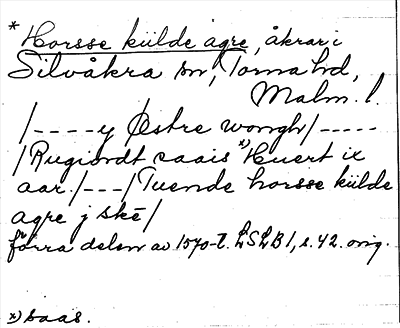 * Horsse külde agre, åkrar i
Silvåkra sn, Torna hd,
Malm. l.
/----y Østre wongh/-----
/Rugiordt saais *) Huert ix
aar./---/Tuende horsse külde
agre j skè/
förra delen av 1570-t. LSLB1, s. 42. orig.
*) saas.